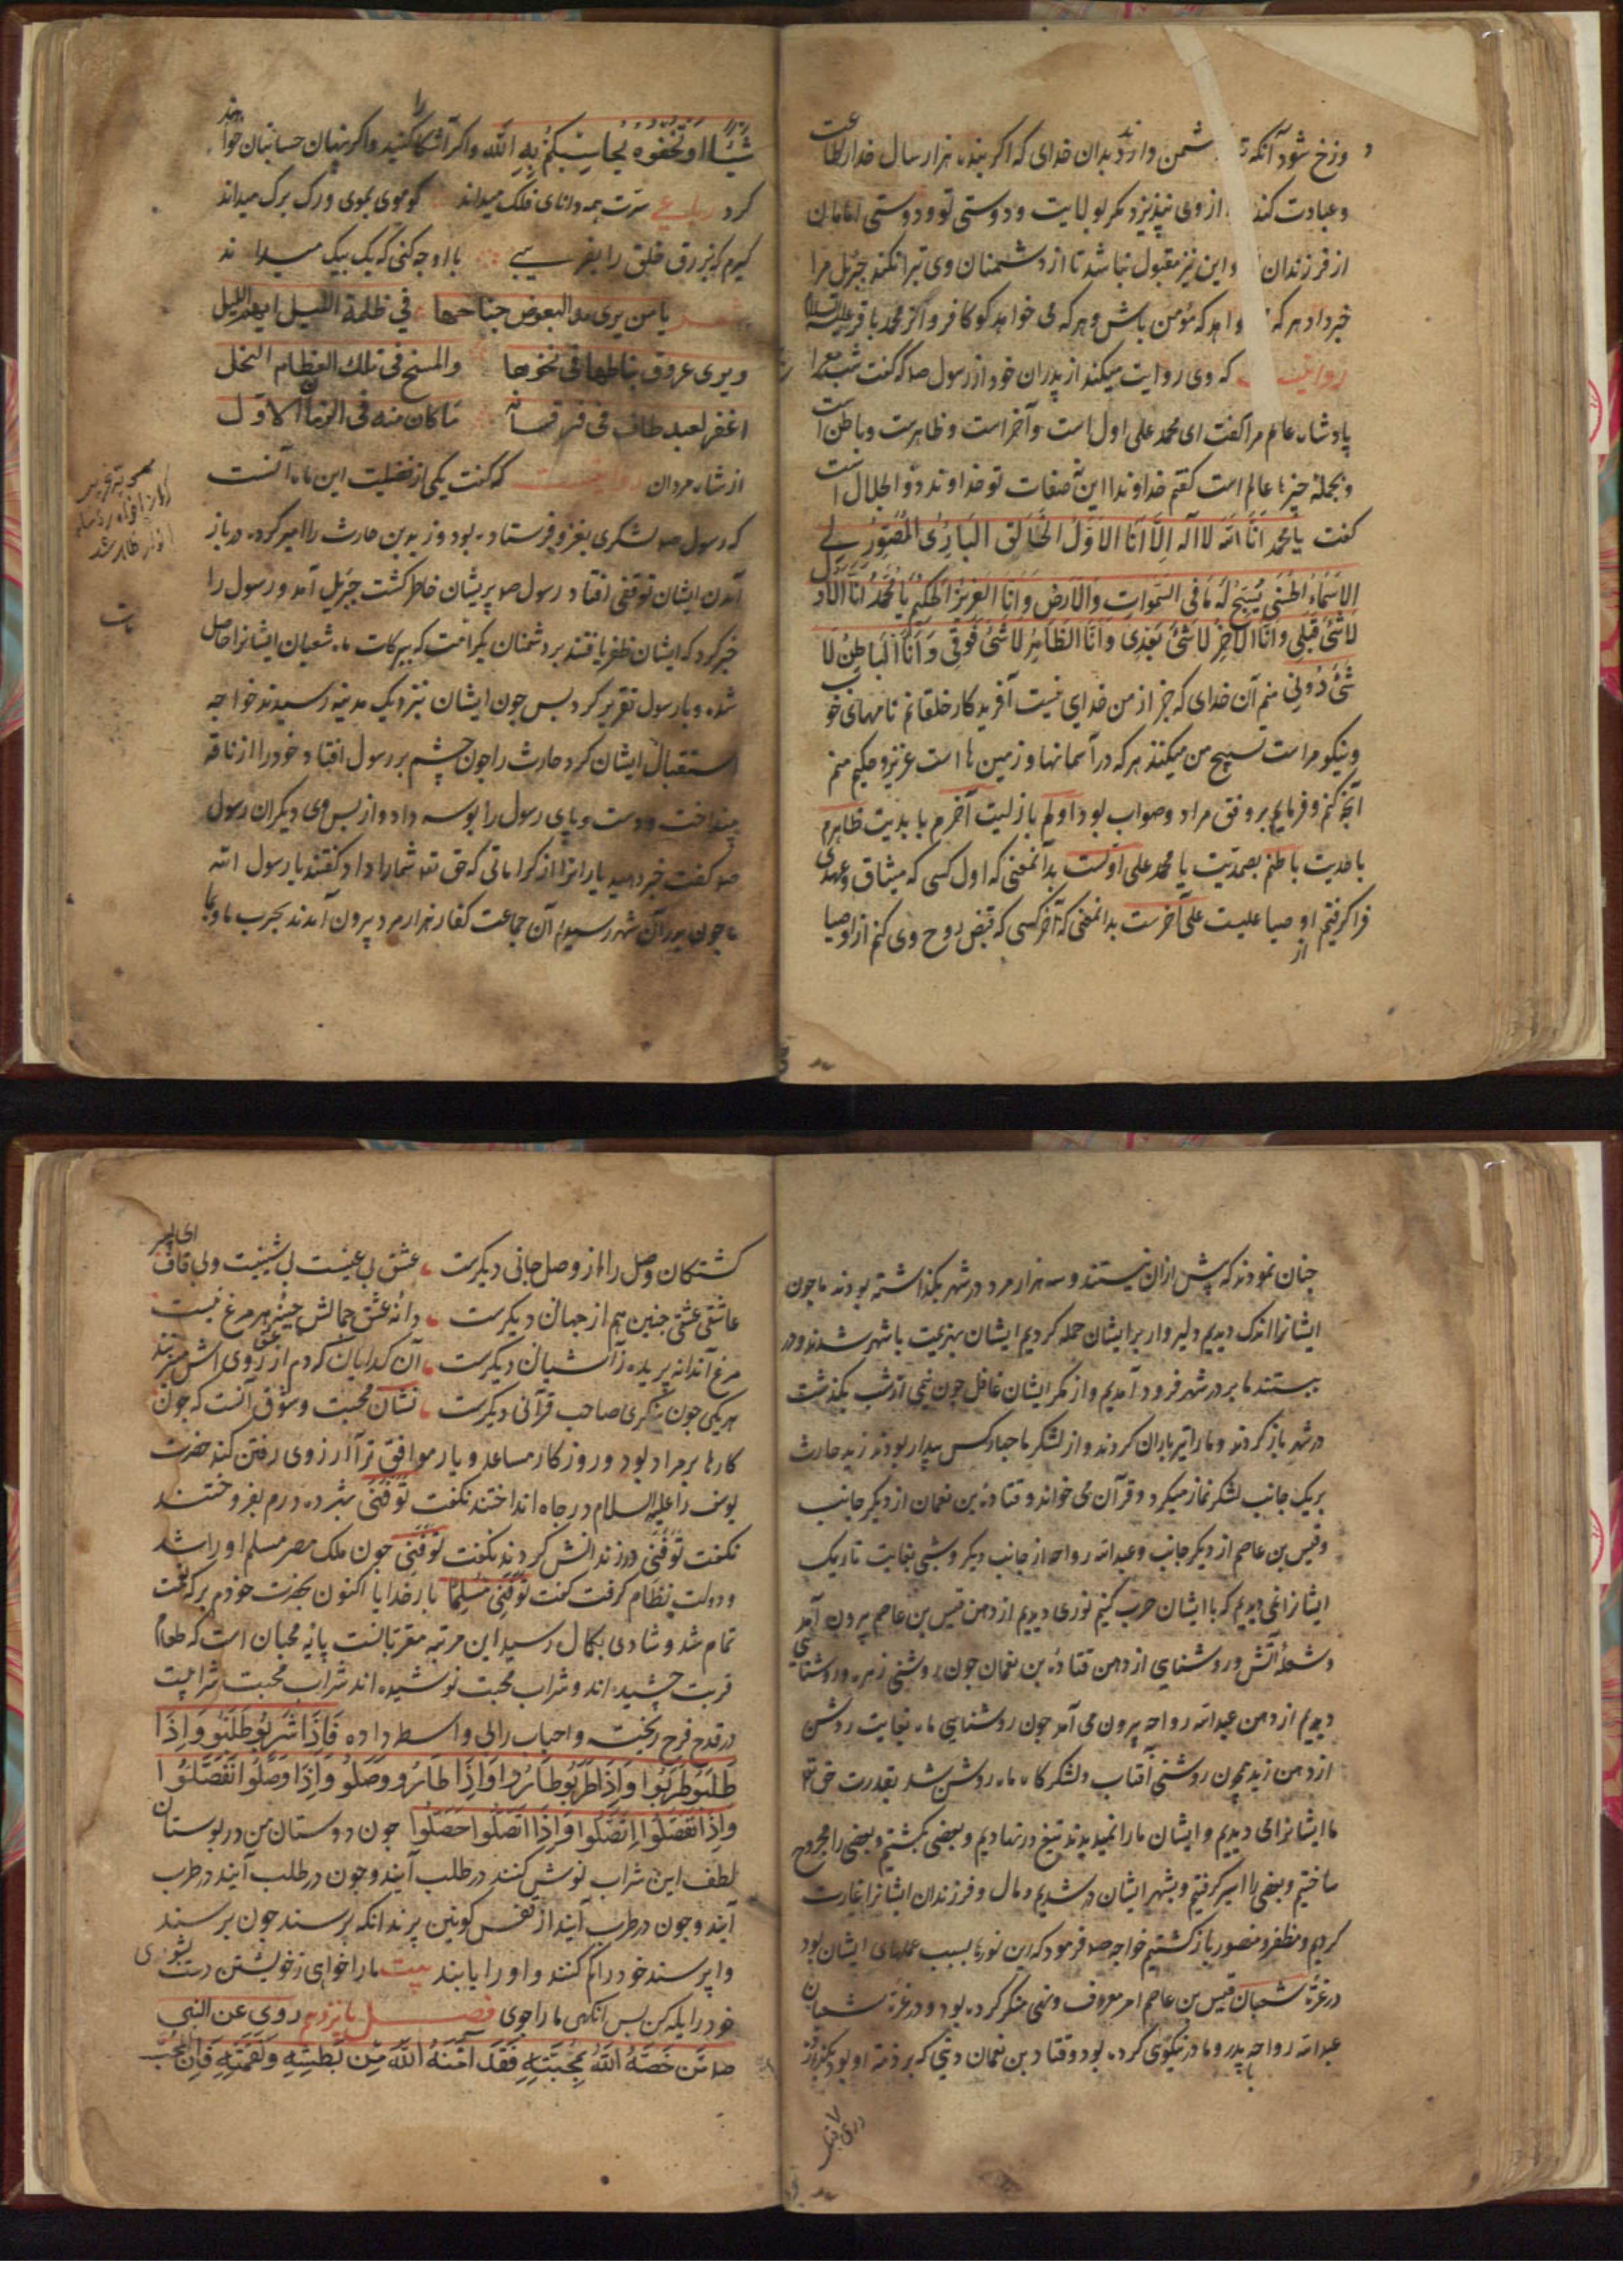 وزخ شود آنکه شمن دارد بدان خدای که اگر بنده هزار سال خدا را طاعت
وعبادت کند از وی نپذیرد مکر بولایت ودوستی تو ودوستی امامان
از فرزندان واین نیز مقبول نباشد تا از دشمنان وی تبرا نکند جبرئیل مرا
خبر داد هر که واهد که مؤمن باش وهر که می خواهد کو کافر واکر محمد باقر علیه السلام
روایت که وی روایت میکند از پدران خود از رسول صد که کفت شب معراج
پادشاه عالم مرا کفت ای محمد علی اول است وآخر است وظاهرست وباطن است
وبجمله چیزها عالم است کفتم خداوندا این صفات تو خداوند ذو الجلال است
کفت یا محمد اَنَا اللهُ لا اله اِلّا اَنَا الاَوَّلُ الخَالِقُ البَارِئُ المُصَوِّرُ لی
الاَسْمَاءُ الحُسْنَی یُسَبِّحُ لَهُ مَا فِی السَّمَوَاتِ وَالاَرْضِ وَانَا العَزِیزُ الحَکِیمُ یَا مُحَمَّدُ اَنَا الاَوَّلُ
لَا شَیْءَ قَبْلِی وَانَا الآخِرُ لَا شَیْءَ بَعْدِی وَاَنَا الظَّاهِرُ لَا شَیْءَ فَوْقِی وَاَنَا البَاطِنُ لَا
شَیْءَ دُونِی منم آن خدای که جز از من خدای نیست آفریدکار خلقانم نامهای خوب
ونیکو مراست تسبیح من میکنند هر که در آسمانها وزمین ها است عزیز وحکیم منم
آنچه کنم وفرمایم بر وفق مراد وصواب بود اولم بازلیت آخرم بابدیت ظاهرم
باحدیت باطنم بصمدیت یا محمد علی اولست بدانمعنی که اول کسی که میثاق وعهدی
فرا کرفتم از اوصیا علیست علی آخرست بدانمعنی که آخر کسی که قبض روح وی کنم از اوصیا
شَیْئًا اَوْ تُخْفُوهُ یُحَاسِبْکُمْ بِهِ اللّه واکر آشکارا کنید واکر پنهان حسابتان خواهد
کرد رباعی سرت همه دانای فلک میداند کو موی بموی ورک برک میداند
کیرم که بزرق خلق را بفریبی با او چه کنی که یک بیک میداند
شعر یا من یری مد البعوض جناحها فی ظلمة اللیل البهیم الالیل
ویری عروق نیاطها فی نحرها والمخ فی تلک العظام النحل
اغفر لعبد طاف فی فرقانه ما کان منه فی الزمان الاول
از شاه مردان روایتست که کفت یکی از فضیلت این ماه آنست
که رسول صد لشکری بغزو فرستاده بود وزید بن حارث را امیر کرده در باز
آمدن ایشان توقفی افتاد رسول صد پریشان خاطر کشت جبرئیل آمد ورسول را
خبر کرد که ایشان ظفر یافتند بر دشمنان بکرامت که ببرکات ماه شعبان ایشانرا حاصل
شده وبا رسول تقریر کرد پس چون ایشان بنزدیک مدینه رسیدند خواجه
استقبال ایشان کرد حارث را چون چشم بر رسول افتاد خود را از ناقه
بینداخت ودست وپای رسول را بوسه داد واز پس وی دیکران رسول
صد کفت خبر دهید یارانرا از کراماتی که حق تعه شما را داد کفتند یا رسول الله
ما چون بدر آن شهر رسیدیم آن جماعت کفار هزار مرد بیرون آمدند بحرب ما وبما
چنان نمودند که بیش از آن نیستند وسه هزار مرد در شهر بکذاشته بودند ما چون
ایشانرا اندک دیدیم دلیروار بر ایشان حمله کردیم ایشان بهزیمت با شهر شدند ودر
ببستند ما بر در شهر فرود آمدیم واز مکر ایشان غافل چون نیمی از شب بکذشت
در شهر باز کردند وما را تیرباران کردند واز لشکر ما چهار کس بیدار بودند زید حارث
بر یک جانب لشکر نماز میکرد وقرآن می خواند وقتادة بن نعمان از دیکر جانب
وقیس بن عاصم از دیکر جانب وعبد الله رواحه از جانب دیکر وشبی بغایت تاریک
ایشانرا نمی دیدیم که با ایشان حرب کنیم نوری دیدیم از دهن قیس بن عاصم بیرون آمد
وشعلهٔ آتش وروشنایی از دهن قتادة بن نعمان چون روشنی زهره وروشنایی
دیدیم از دهن عبد الله رواحه بیرون می آمد چون روشنایی ماه بغایت روشن
از دهن زید همچون روشنی آفتاب ولشکرکاه ما روشن شد بقدرت حق تعه
ما ایشانرا می دیدیم وایشان ما را نمیدیدند تیغ در نهادیم وبعضی بکشتیم وبعضی را مجروح
ساختیم وبعضی را اسیر کرفتیم وبشهر ایشان در شدیم ومال وفرزندان ایشانرا غارت
کردیم ومظفر ومنصور باز کشتیم خواجه صد فرمود که این نورها بسبب عملهای ایشان بود
در غرّهٔ شعبان قیس بن عاصم امر معروف ونهی منکر کرده بود ودر غرّهٔ شعبان
عبد الله رواحه با پدر ومادر نیکوی کرده بود وقتاد بن نعمان دینی که بر ذمهٔ او بود
کشتکان وصل را از وصل جانی دیکرست عشق بی عینست بی شینست وبی قاف ای پسر
عاشقی عشقی چنین هم از جهان دیکرست دانهٔ عشق جمالش چینهٔ هر مرغ نیست
مرغ آن دانه پریده ز آشیان دیکرست آن کدایان که دم از عشق روی اش میزنند
هر یکی چون بنکری صاحب قرآنی دیکرست نشان محبت وشوق آنست که چون
کارها بر مراد بود وروزکار مساعد ویار موافق ترا آرزوی رفتن کند حضرت
یوسف را علیه السلام در چاه انداختند نکفت تَوَفَّنِی بهژده درم بفروختند
نکفت تَوَفَّنِی در زندانش کردند نکفت تَوَفَّنِی چون ملک مصر مسلم او را شد
ودولت نظام کرفت کفت تَوَفَّنِی مُسْلِمًا بار خدایا اکنون بحضرت خودم بر که نعمت
تمام شد وشادی بکمال رسید این مرتبهٔ مقربانست پایهٔ محبان است که طعام
قربت چشیده اند وشراب محبت نوشیده اند شراب محبت شرابیست
در قدح فرح ریخته واحباب را بی واسطه داده فَاِذَا شَرِبُو طَلَبُو وَاِذَا
طَلَبُو طَرِبُوا وَاِذَا طَرِبُو طَارُوا وَاِذَا طَارُو وَصَلُو وَاِذَا وَصَلُوا انْفَصَلُوا
وَاِذَا انْفَصَلُوا اِتَّصَلُوا وَاِذَا اتَّصَلُوا حَصَلُوا چون دوستان من در بوستان
لطف این شراب نوش کنند در طلب آیند وچون در طلب آیند در طرب
آیند وچون در طرب آیند از قفس کونین پرند آنکه برسند چون برسند
وا برسند خود را کم کنند واو را یابند بیت ما را خواهی ز خویشتن دست بشوی
خود را یله کن پس آنکهی ما را جوی فصل پانزدهم روی عن النبی
صد مَنْ خَصَّهُ اللّهُ بِمَحَبَّتِهِ فَقَدْ آمَنَهُ اللّهُ مِنْ بَطْشِهِ وَنِقْمَتِهِ فَاِنَّ المُحِبّ